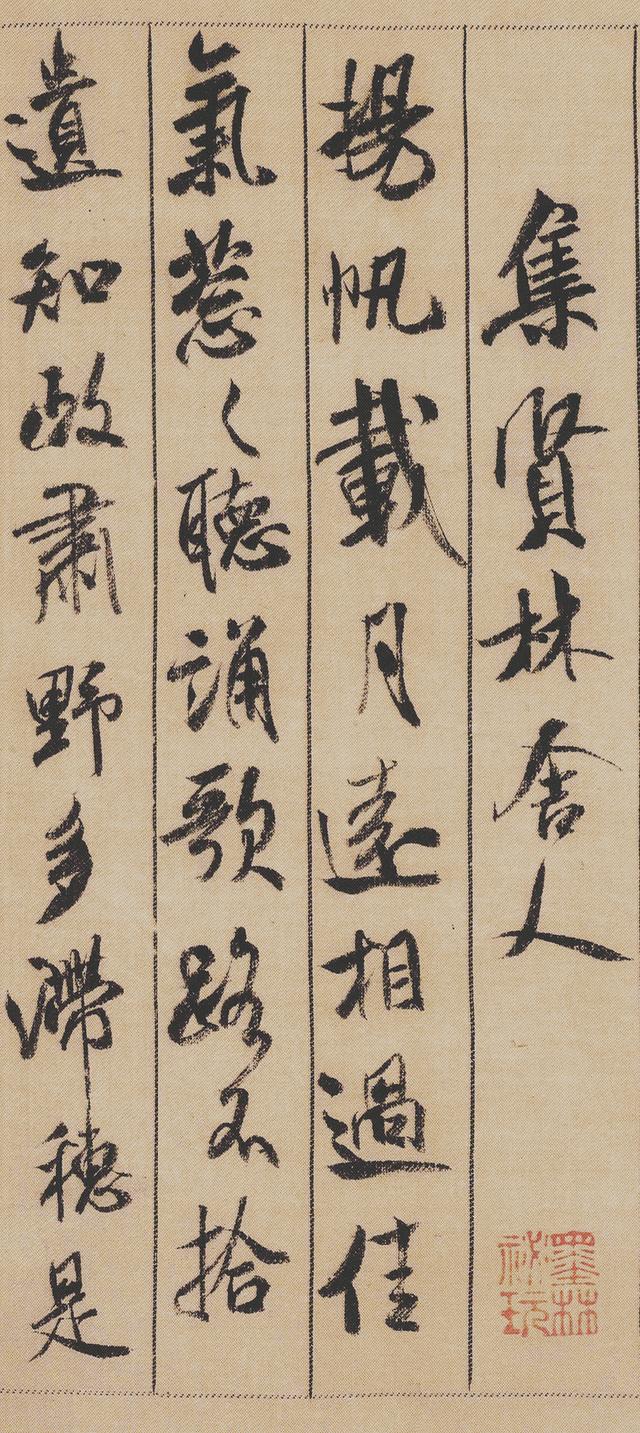 集賢林舍人
揚帆載月遠相過佳
氣葱〻聽誦歌路不拾
遺知政肅野多滯穗是
墨林秘玩